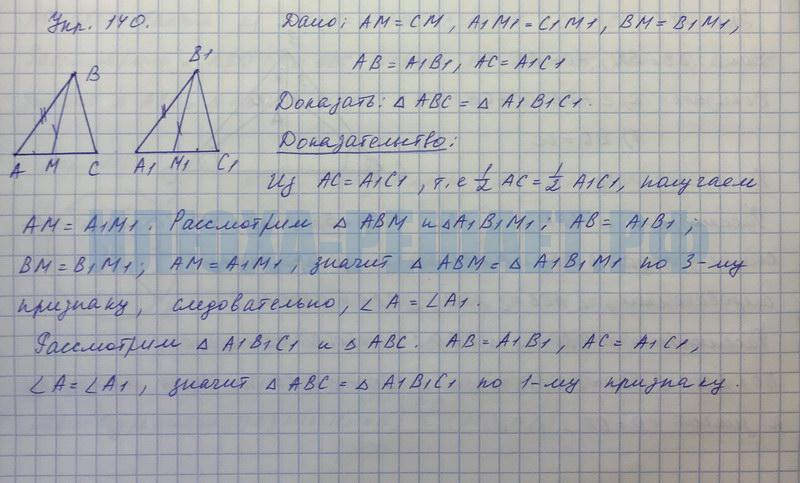 Упр. 140.
Дано: AM = CM, A1M1 = C1M1, BM = B1M1,
AB = A1B1, AC = A1C1
Доказать: △ ABC = △ A1B1C1.
Доказательство:
B
A M C
B1
A1 M1 C1
Из AC = A1C1, т.е 1/2 AC = 1/2 A1C1, получаем
AM = A1M1. Рассмотрим △ ABM и △A1B1M1; AB = A1B1;
BM = B1M1; AM = A1M1, значит △ ABM = △ A1B1M1 по 3-му
признаку, следовательно, ∠A = ∠A1.
Рассмотрим △ A1B1C1 и △ ABC. AB = A1B1, AC = A1C1,
∠A = ∠A1, значит △ ABC = △ A1B1C1 по 1-му признаку.